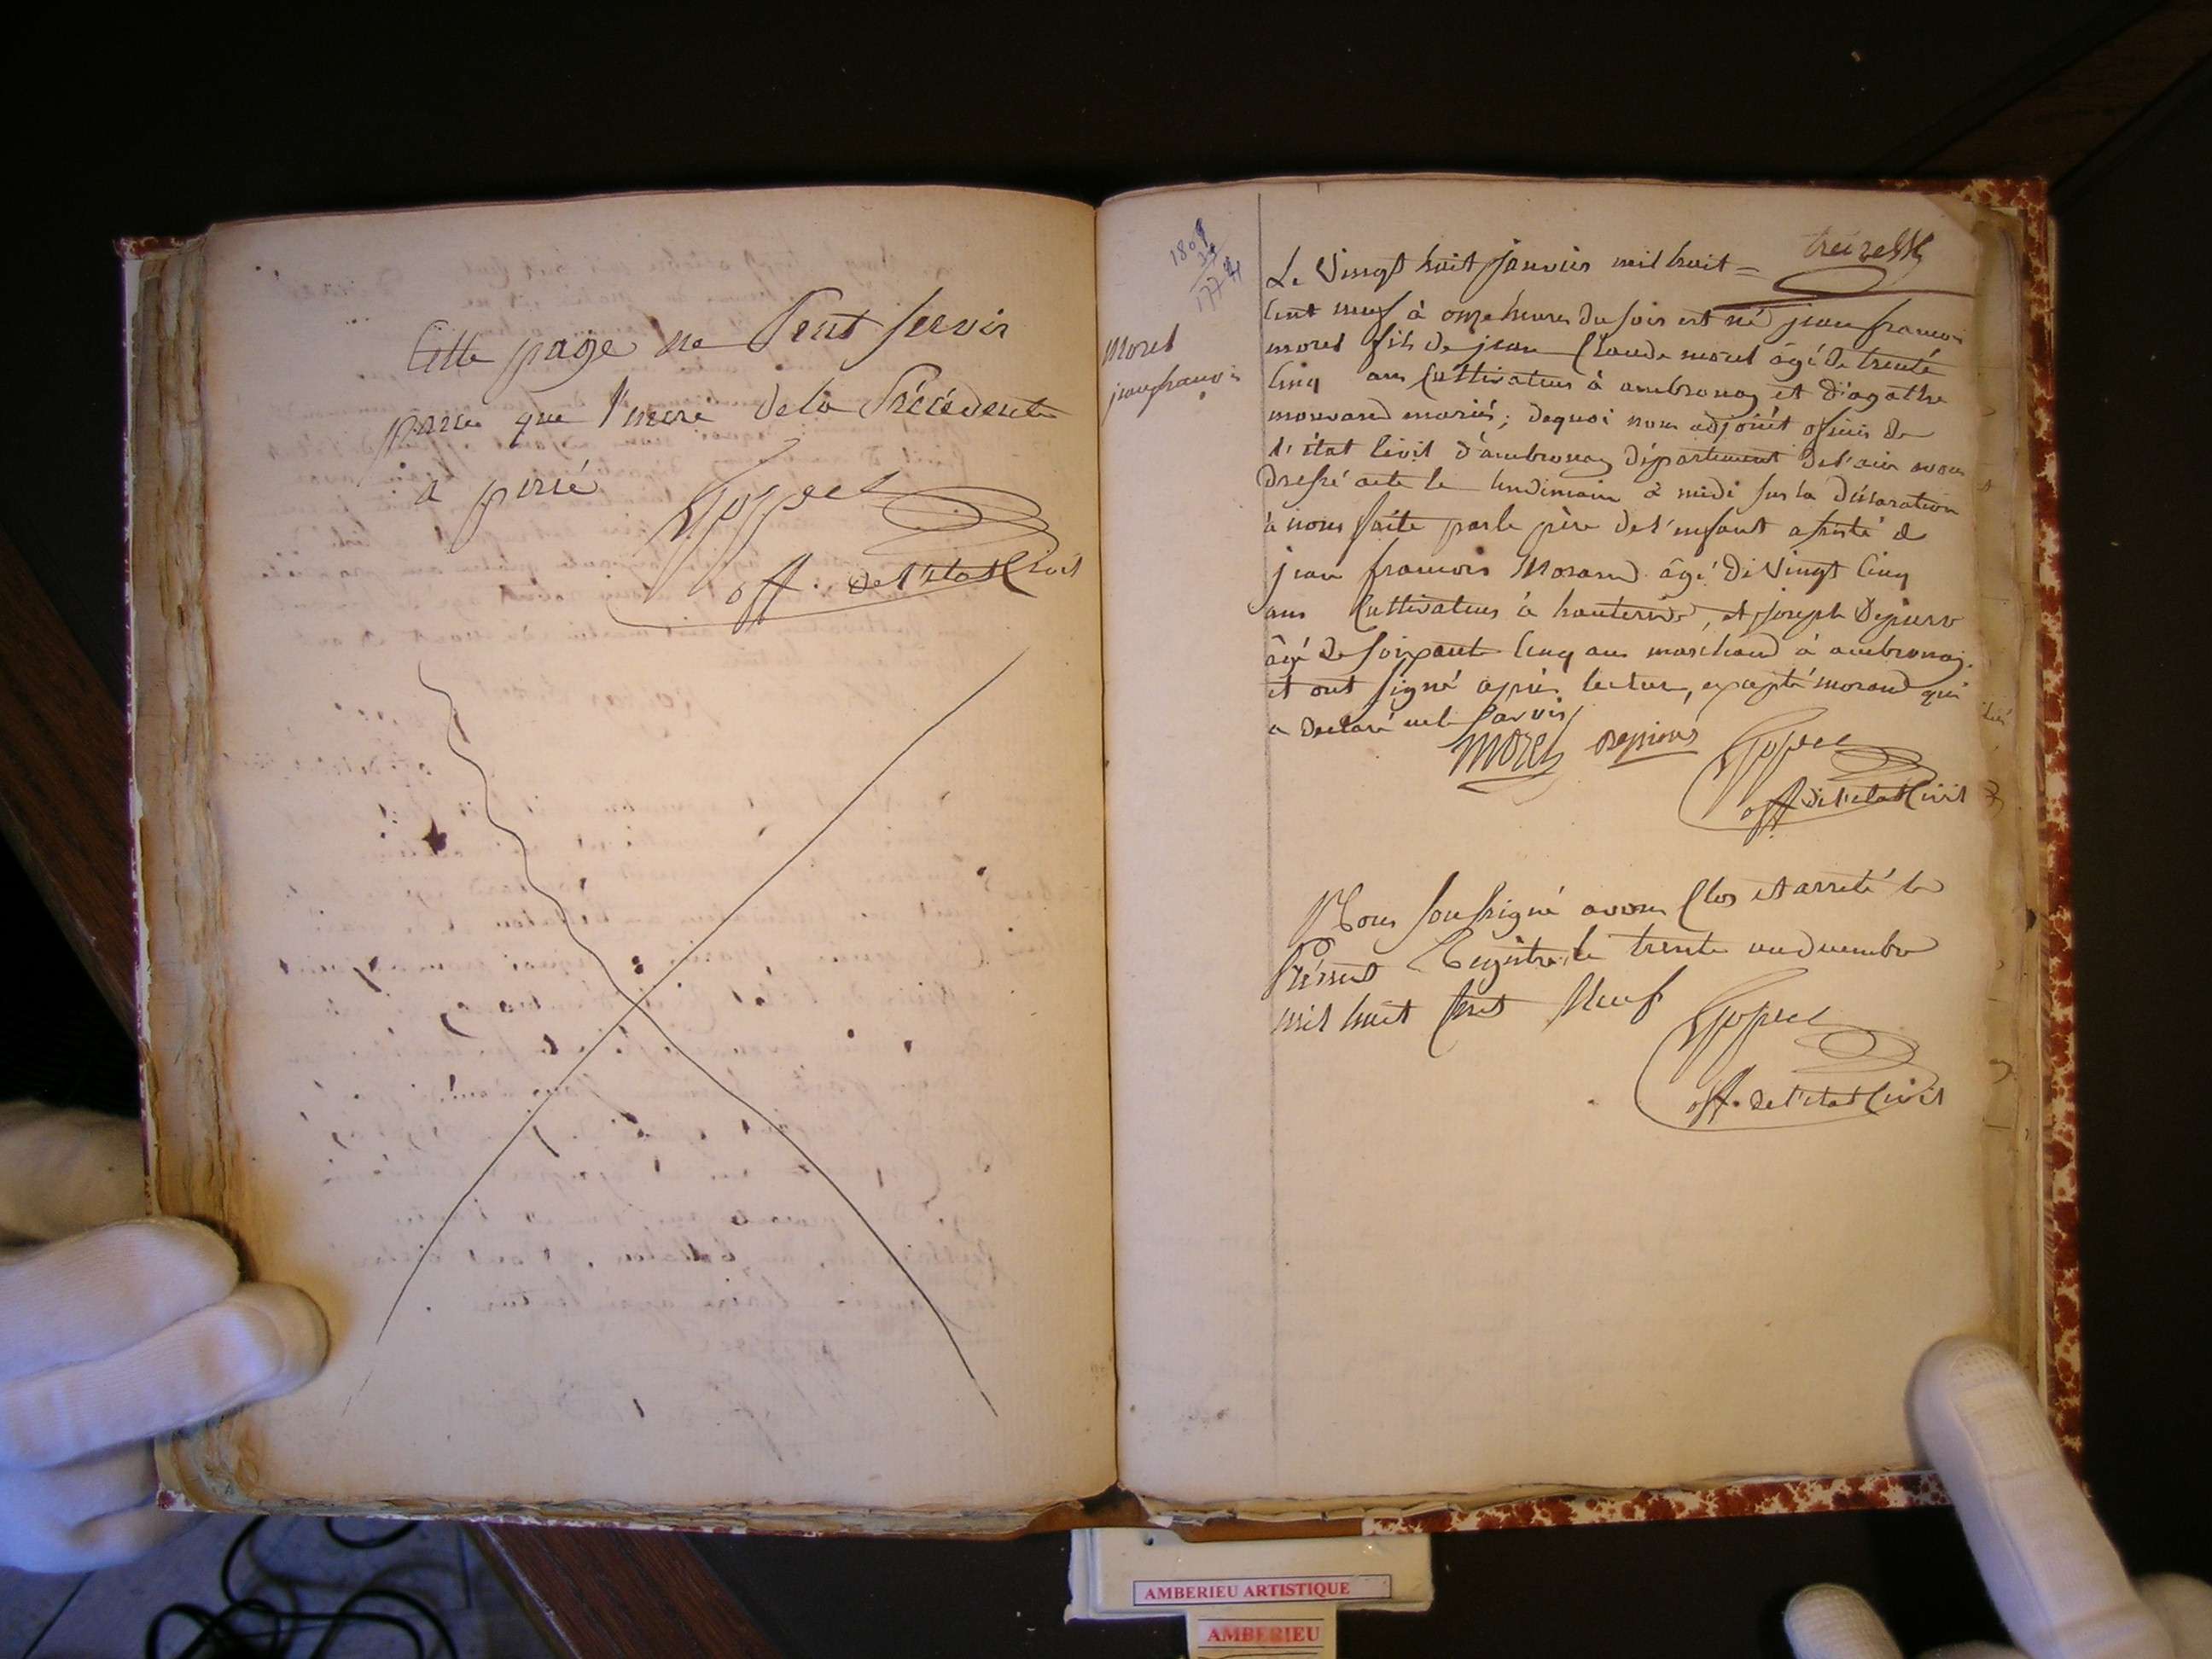 Cette page ne Peut servir
parce que l'encre de la Précédente
a percé
off. de l'état Civil
1809
Morel
jean francois
treize
Le Vingt huit janvier mil huit =
Cent neuf à onze heures du soir est né jean francois
morel fils de jean Claude morel âgé de trente
Cinq ans Cultivateur à ambronay et d'agathe
mariés ; dequoi nous adjoint officier de
l'état Civil d'ambronay département de l'ain avons
dressé acte le lendemain à midi sur la déclaration
à nous faite par le père de l'enfant assisté de
jean francois Morand âgé de Vingt Cinq
ans Cultivateur à hauterive, et joseph
âgé de soixante Cinq ans marchand à ambronay.
et ont signé après lecture, excepté morand qui
a declaré ne le savoir
morel
off. de l'état Civil
Nous soussigné avons Clos et arreté le
Présent Registre le trente un decembre
mil huit Cent Neuf
off. de l'état Civil
AMBERIEU ARTISTIQUE
AMBERIEU